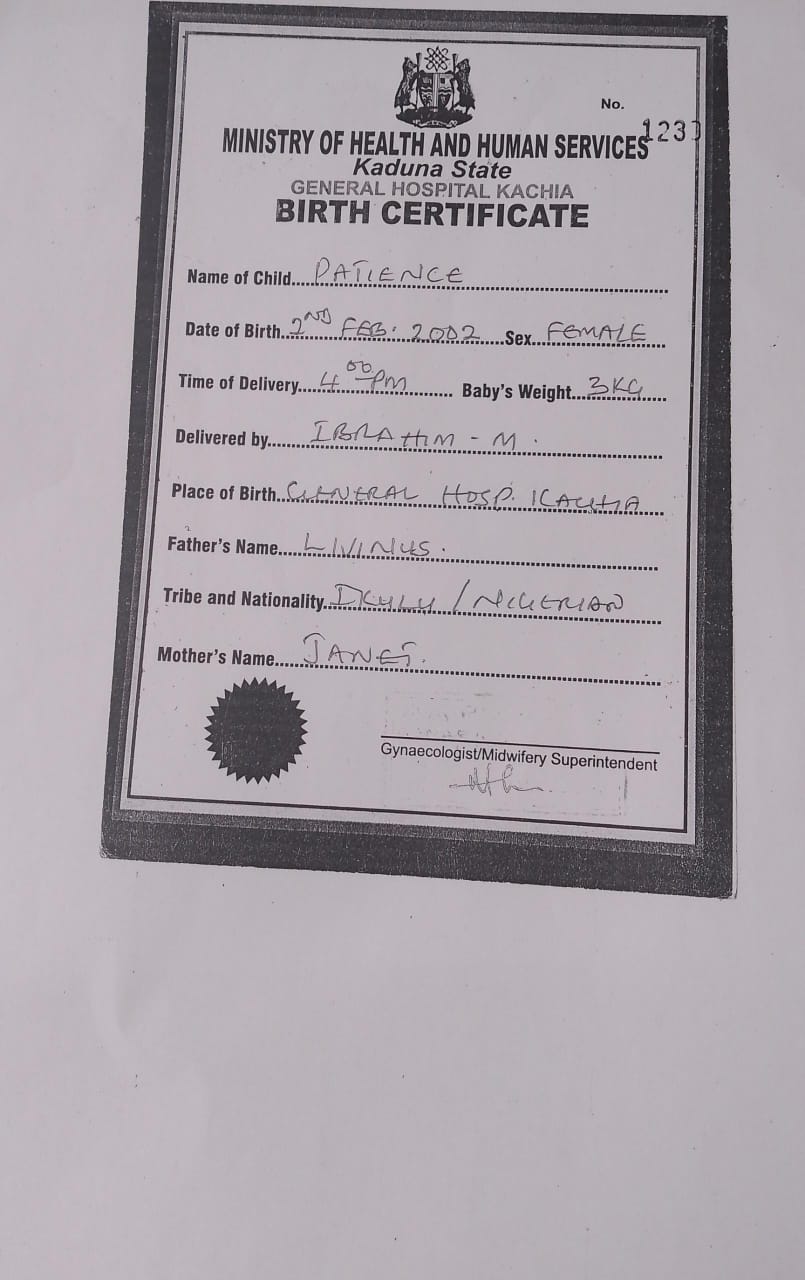 No.
1233
MINISTRY OF HEALTH AND HUMAN SERVICES
Kaduna State
GENERAL HOSPITAL KACHIA
BIRTH CERTIFICATE
Name of Child....PATIENCE
Date of Birth..2ND FEB. 2002 Sex..FEMALE
Time of Delivery....4.00PM Baby's Weight...3KG
Delivered by.......IBRAHIM - M.
Place of Birth..GENERAL HOSP. KACHIA
Father's Name....LIVINUS.
Tribe and Nationality..IKULU / NIGERIAN
Mother's Name....JANET.
Gynaecologist/Midwifery Superintendent